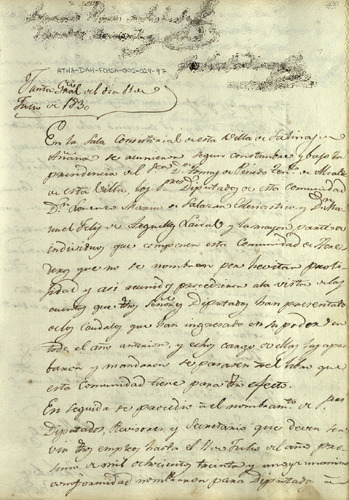 ATHA-DAH-FCMCA-002-024-97
Junta Gral del dia 11 de
Julio de 1830
En la Sala Consistorial de esta Villa de Salinas de
Añana se reunieron segun costumbre y bajo la
presidencia del Sor Dn Tomas de Pinedo Tente de Alcalde
de esta Villa, los Sres Diputados de esta Comunidad
Dn Lorenzo Maria de Salazar Eclesiastico y Dn Ma
nuel Feliz de Arguelles Laical y la mayor parte de
individuos que componen esta Comunidad de
que no se nombran por hevitar proli
gidad y asi reunidos procedieron a la vista de las
cuentas que dhos Señores Diputados han presentado
de los Caudales que han ingresado en su poder en
todo el año anterior, y echos cargo de ellas las apro
baron y mandaron se pasasen al libro que
esta Comunidad tiene para efecto.
En seguida se procedio a el nombramto de Sres
Diputados, Revisores y Secretario que deven ser
vir dhos empleos hasta el 11 de Julio del año pro
simo de mil ochocientos treinta y uno y unanime
conformidad nombraron para Diputado